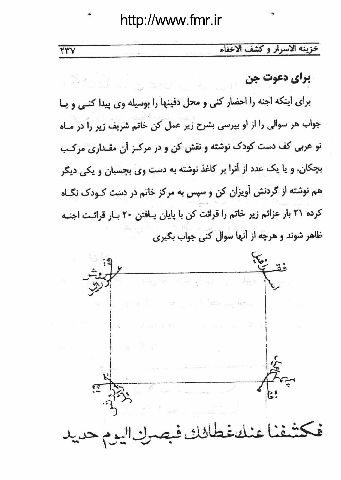 http://www.fmr.ir
خزینه الاسرار و کشف الاخفاء
۲۳۷
برای دعوت جن
برای اینکه اجنه را احضار کنی و محل دفینها را بوسیله وی پیدا کنی و یا
جواب هر سوالی را از او بپرسی بشرح زیر عمل کن خاتم شریف زیر را در ماه
نو عربی کف دست کودک نوشته و نقش کن و در مرکز آن مقداری مرکب
بچکان. و یا یک عدد از آنرا بر کاغذ نوشته به دست وی بچسبان و یکی دیگر
هم نوشته از گردنش آویزان کن و سپس به مرکز خاتم در دست کودک نگاه
کرده ۲۱ بار عزائم زیر خاتم را قرائت کن با پایان یافتن ۲۰ بار قرائت اجنه
ظاهر شوند و هرچه از آنها سوال کنی جواب بگیری
فکشفنا عنك غطائك فبصرك الیوم حدید